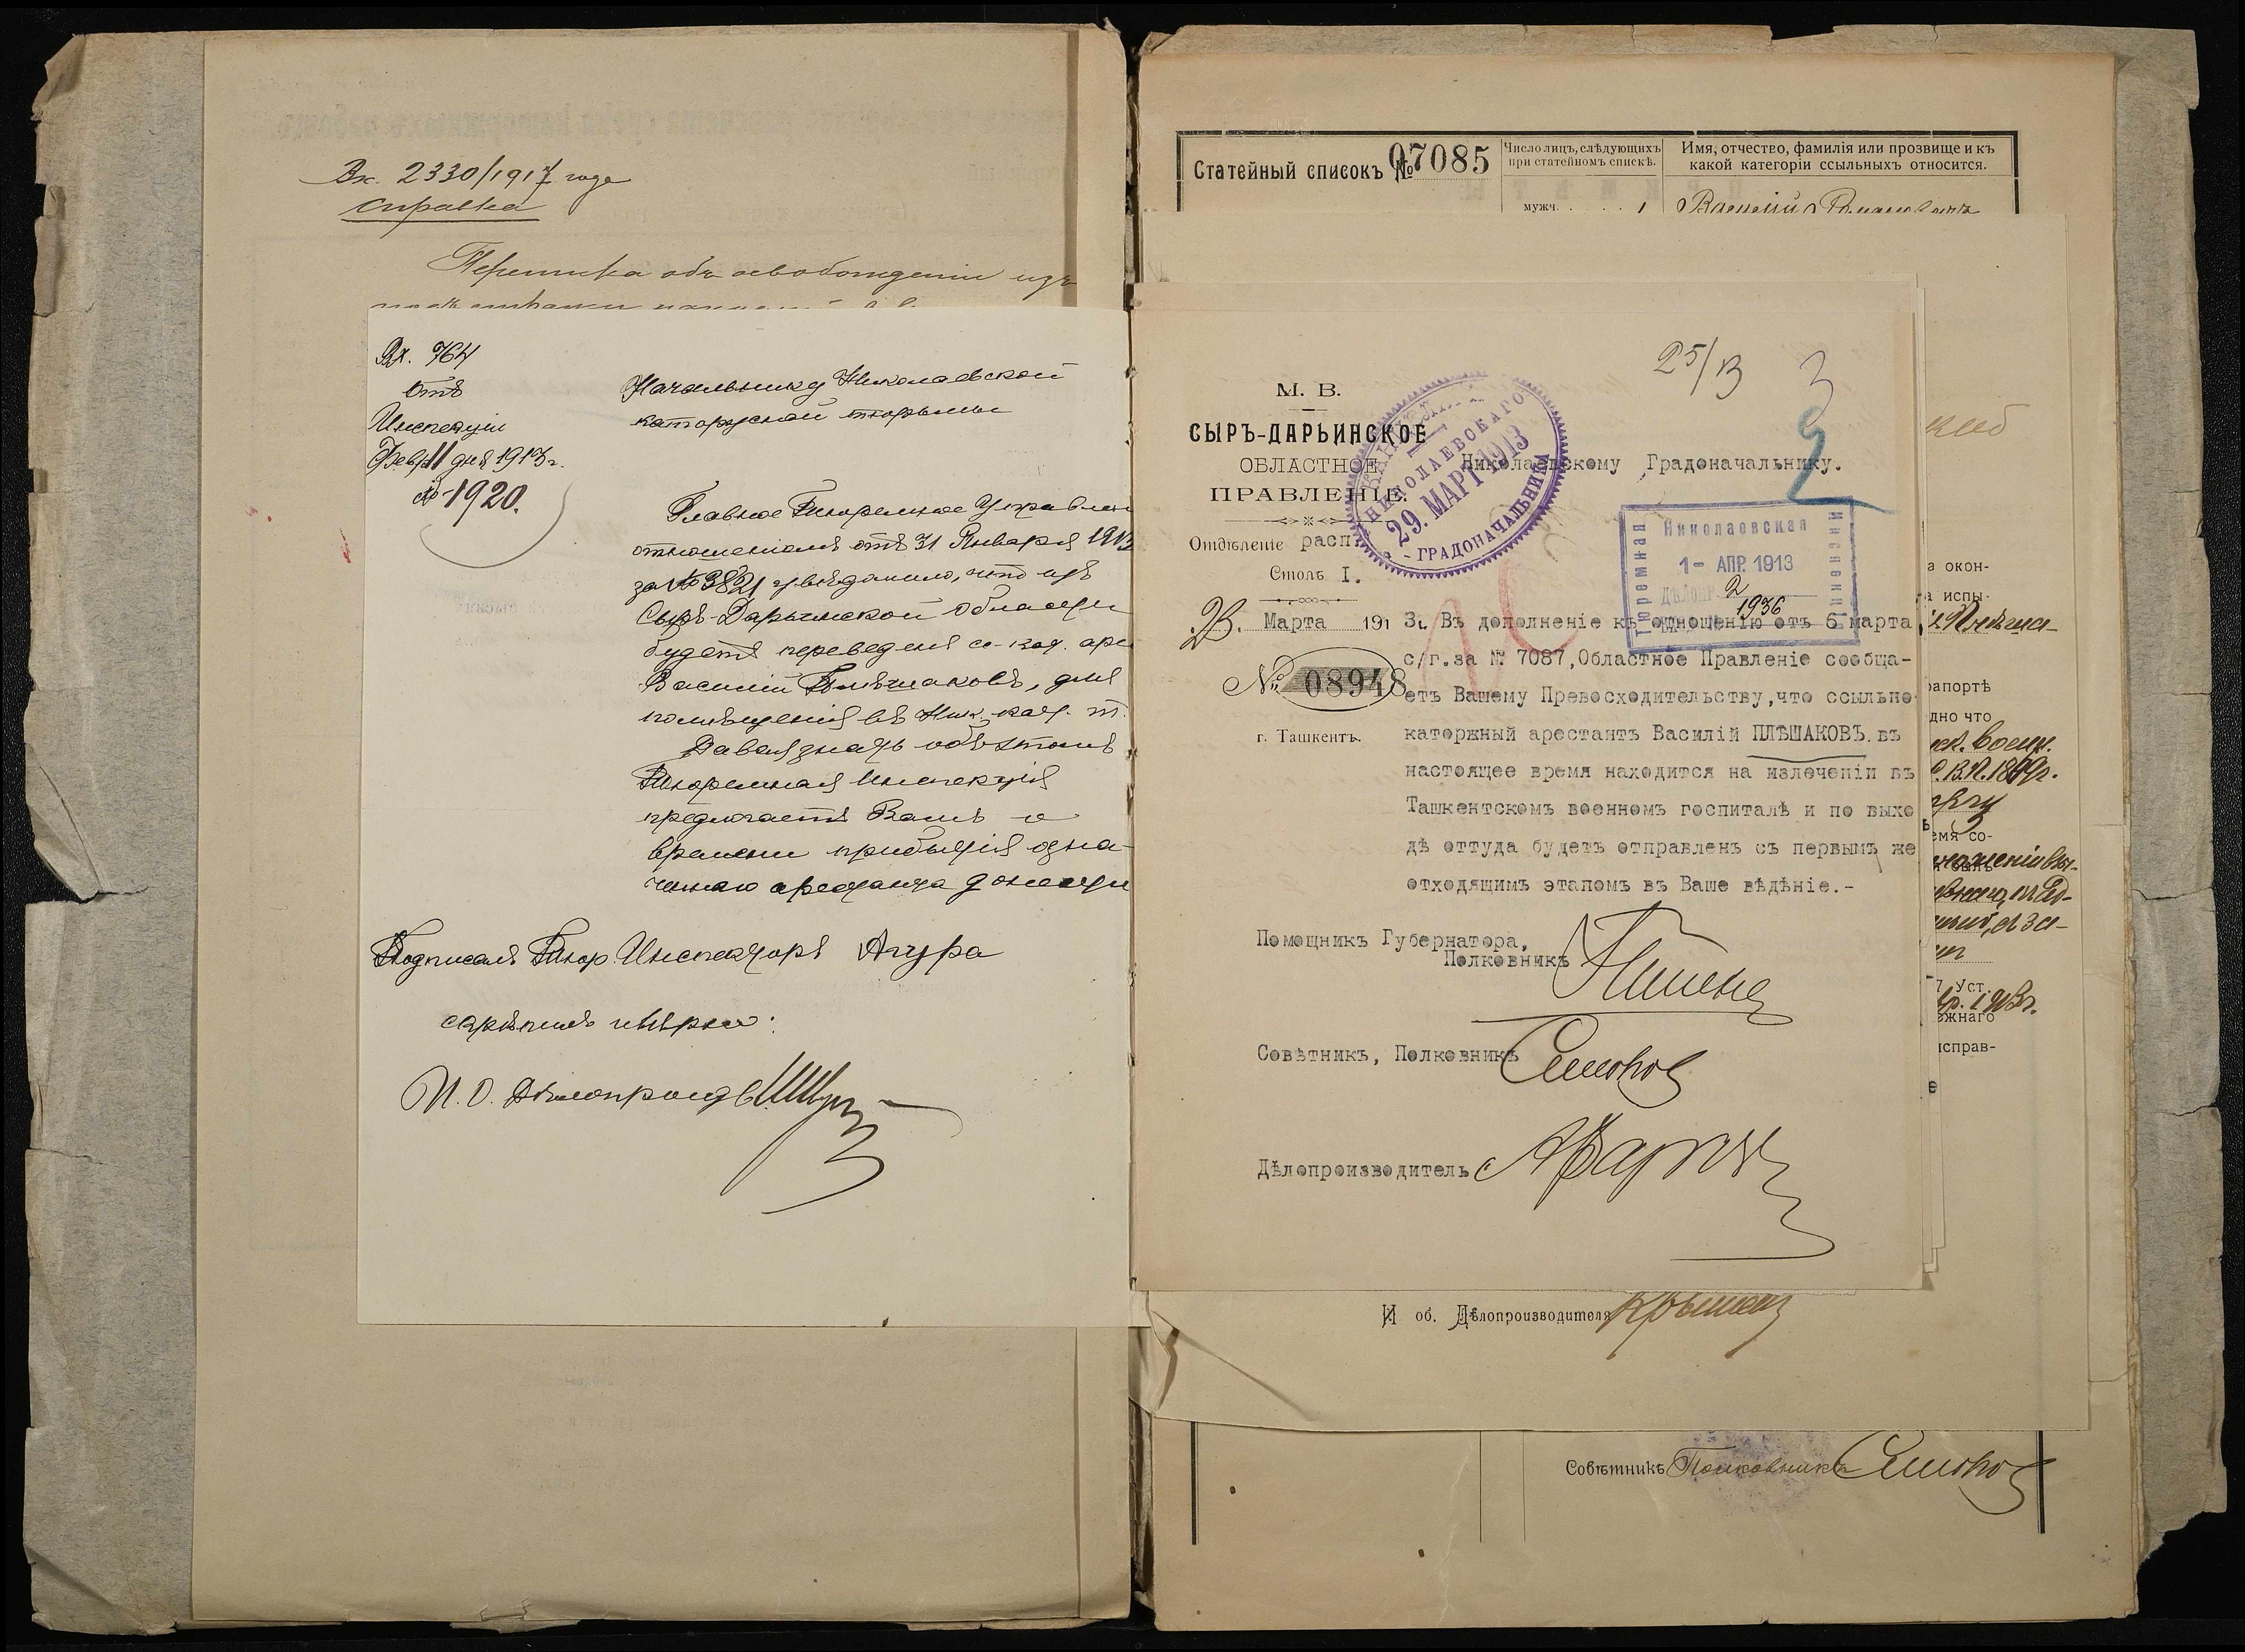 Вх. 2330/1917 года
Справка
Переписка объ освобожденіи изъ
Вх. 764
Отъ
Инспекціи
Февр. 11 дня 1913 г.
№ 1920.
Начальнику Николаевской
каторжной тюрьмы
Главное Тюремное Управлен
отношеніемъ отъ 31 Января 1913
за № 3821 увѣдомило, что изъ
Сыръ-Дарьинской области
будетъ переведенъ с-кат. аре
Василій Плѣшаковъ, для
помѣщенія въ Ник. кат. т.
Давая знать объ этомъ
Тюремная Инспекція
предлагаетъ Вамъ о
времени прибытія озна-
ченнаго арестанта донести
Подписалъ Тюр. Инспекторъ Агура
скрѣпилъ и вѣрно:
И. О. Дѣлопроизв.
Статейный списокъ № 07085
Число лицъ, слѣдующихъ
при статейномъ спискѣ.
мужч. . . . . 1
Имя, отчество, фамилія или прозвище и къ
какой категоріи ссыльныхъ относится.
Василій Романовичъ
25/В 3
М. В.
СЫРЪ-ДАРЬИНСКОЕ
ОБЛАСТНОЕ
ПРАВЛЕНІЕ.
Отдѣленіе расп.
Столъ I.
23. Марта 1913 г.
№ 08948
г. Ташкентъ.
НИКОЛАЕВСКАГО
29. МАРТ 1913
ГРАДОНАЧАЛЬНИКА
Николаевскому Градоначальнику.
Николаевская
Тюремная
1 - АПР. 1913
2
1936
Инспекція
Въ дополненіе къ отношенію отъ 6 марта
с/г. за № 7087, Областное Правленіе сообща-
етъ Вашему Превосходительству, что ссыльно-
каторжный арестантъ Василій ПЛѢШАКОВЪ въ
настоящее время находится на излеченіи въ
Ташкентскомъ военномъ госпиталѣ и по выхо
дѣ оттуда будетъ отправленъ съ первымъ же
отходящимъ этапомъ въ Ваше вѣдѣніе.-
Помощникъ Губернатора,
Полковникъ
Совѣтникъ, Полковникъ Семоно
Дѣлопроизводитель
а окон-
а испы-
рапортѣ
дно что
емя со-
7 Уст.
эжнаго
исправ-
И об. Дѣлопроизводителя
Совѣтникъ Полковникъ Семоно